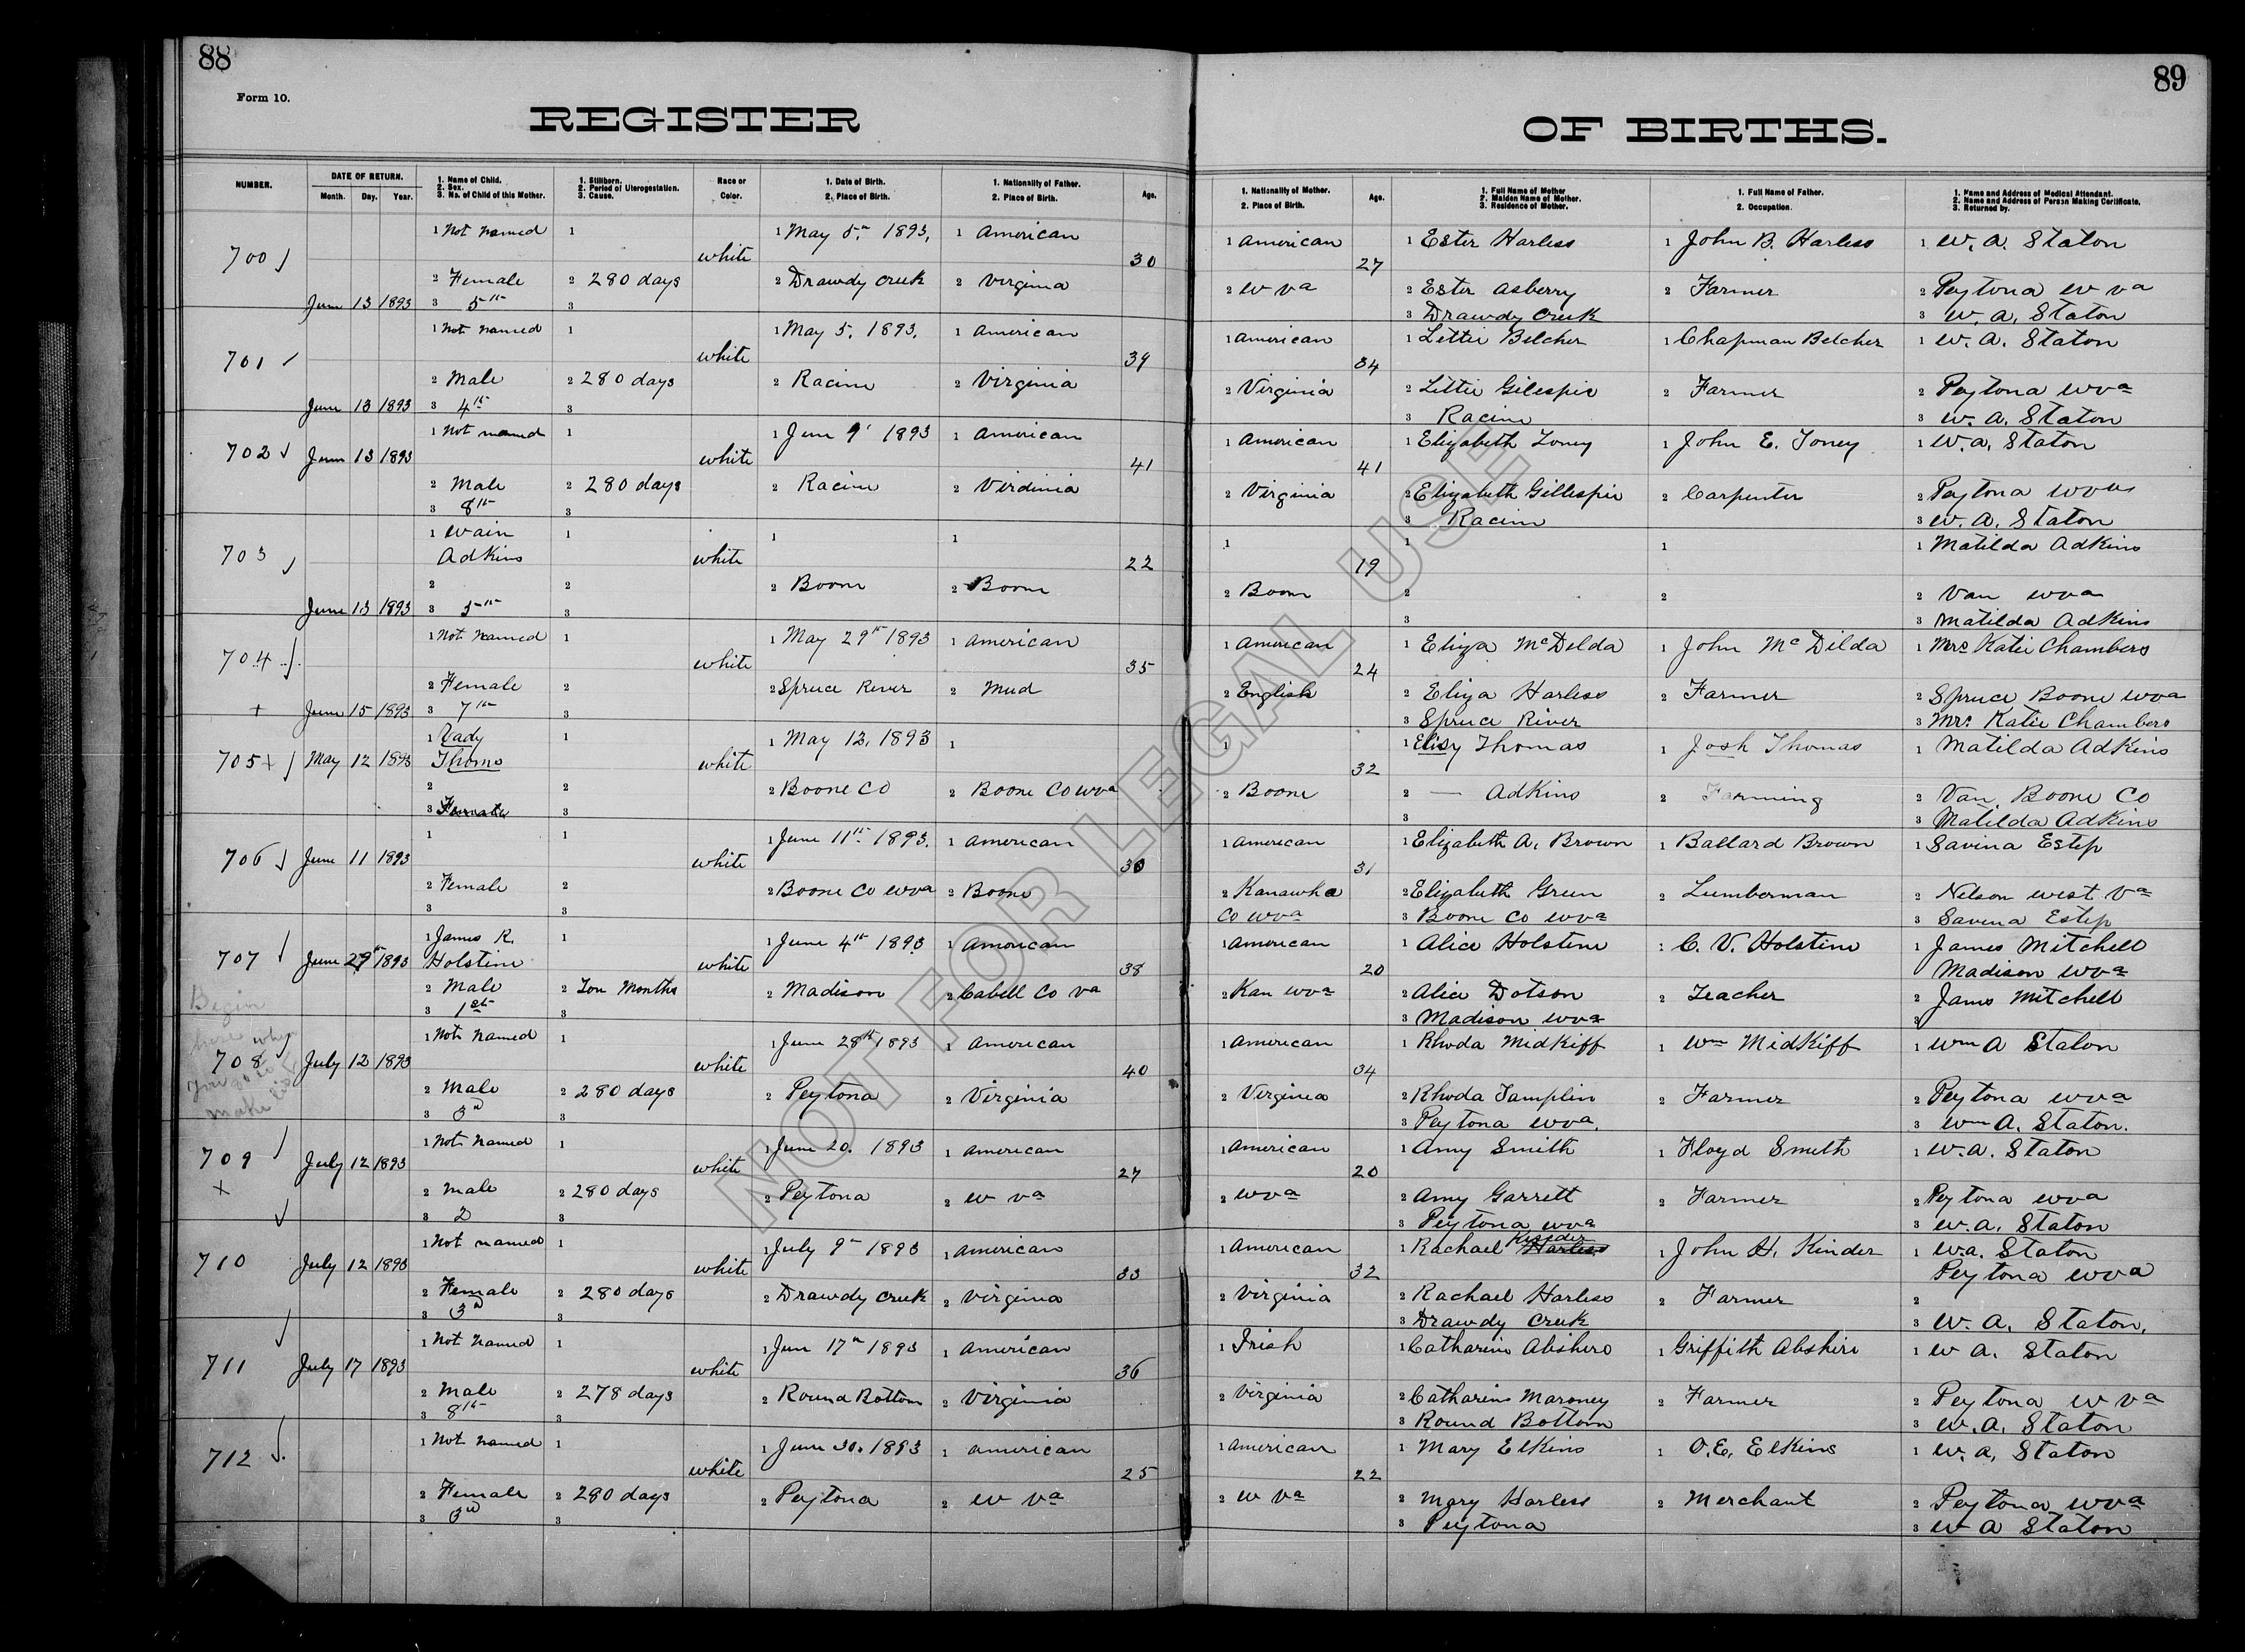 88
89
Form 10.
REGISTER OF BIRTHS.
NUMBER.
DATE OF RETURN.
Month. Day. Year.
1. Name of Child.
2. Sex.
3. No. of Child of this Mother.
1. Stillborn.
2. Period of Uterogestation.
3. Cause.
Race or Color.
1. Date of Birth.
2. Place of Birth.
1. Nationality of Father.
2. Place of Birth.
Age.
1. Nationality of Mother.
2. Place of Birth.
Age.
1. Full Name of Mother
2. Maiden Name of Mother.
3. Residence of Mother.
1. Full Name of Father.
2. Occupation.
1. Name and Address of Medical Attendant.
2. Name and Address of Person Making Certificate.
3. Returned by.
1 Not named 1 1 May 5, 1893, 1 American 1 American 1 Ester Harless 1 John B. Harless 1 W. A. Staton
700 white 30 27
2 Female 2 280 days 2 Drawdy Creek 2 Virginia 2 W Va 2 Ester Asberry 2 Farmer 2 Peytona W Va
June 13 1893 3 5th 3 3 Drawdy Creek 3 W. A. Staton
1 Not named 1 1 May 5, 1893, 1 American 1 American 1 Lettie Belcher 1 Chapman Belcher 1 W. A. Staton
701 white 39 34
2 Male 2 280 days 2 Racine 2 Virginia 2 Virginia 2 Lettie Gilespie 2 Farmer 2 Peytona WVa
June 13 1893 3 4th 3 3 Racine 3 W. A. Staton
1 Not named 1 1 June 9 1893 1 American 1 American 1 Elizabeth Toney 1 John E. Toney 1 W. A. Staton
702 June 13 1893 white 41 41
2 Male 2 280 days 2 Racine 2 Virdinia 2 Virginia 2 Elizabeth Gillespie 2 Carpenter 2 Peytona WVa
3 8th 3 3 Racine 3 W. A. Staton
1 Wain 1 1 1 1 1 1 1 Matilda Adkins
703 Adkins white 22 19
2 2 2 Boone 2 Boone 2 Boone 2 2 2 Van WVa
June 13 1893 3 5th 3 3 3 Matilda Adkins
1 Not Named 1 1 May 29th 1893 1 American 1 American 1 Eliza McDelda 1 John McDilda 1 Mrs Katie Chambers
704 white 35 24
2 Female 2 2 Spruce River 2 Mud 2 English 2 Eliza Harless 2 Farmer 2 Spruce Boone WVa
+ June 15 1893 3 7th 3 3 Spruce River 3 Mrs. Katie Chambers
1 Vady 1 1 May 12, 1893 1 1 1 Elisy Thomas 1 Josh Thomas 1 Matilda Adkins
705 + May 12 1893 Thoms white 32
2 2 2 Boone Co 2 Boone Co WVa 2 Boone 2 — Adkins 2 Farming 2 Van, Boone Co
3 Female 3 3 3 Matilda Adkins
1 1 1 June 11th 1893. 1 American 1 American 1 Elizabeth A. Brown 1 Ballard Brown 1 Savina Estep
706 June 11 1893 white 30 31
2 Female 2 2 Boone Co WVa 2 Boone 2 Kanawha 2 Elizabeth Green 2 Lumberman 2 Nelson West Va
3 3 Co WVa 3 Boone Co WVa 3 Savina Estep
1 James R. 1 1 June 4th 1893 1 American 1 American 1 Alice Holstine 1 C. V. Holstine 1 James Mitchell
707 June 29th 1893 Holstine white 38 20 Madison WVa
2 Male 2 Ten Months 2 Madison 2 Cabell Co Va 2 Kan WVa 2 Alice Dotson 2 Teacher 2 James Mitchell
3 1st 3 3 Madison WVa 3
Begin here when
you go to
make list
1 Not named 1 1 June 28th 1893 1 American 1 American 1 Rhoda Midkiff 1 Wm Midkiff 1 Wm A Staton
708 July 12 1893 white 40 34
2 Male 2 280 days 2 Peytona 2 Virginia 2 Virginia 2 Rhoda Tamplin 2 Farmer 2 Peytona WVa
3 3d 3 3 Peytona WVa. 3 Wm A. Staton.
1 Not named 1 1 June 20. 1893 1 American 1 American 1 Amy Smith 1 Floyd Smith 1 W. A. Staton
709 July 12 1893 white 27 20
+ 2 Male 2 280 days 2 Peytona 2 W Va 2 WVa 2 Amy Garrett 2 Farmer 2 Peytona WVa
3 2 3 3 Peytona WVa 3 W. A. Staton
1 Not named 1 1 July 9th 1893 1 American 1 American 1 Rachael Harless Kinder 1 John H. Kinder 1 W. A. Staton
710 July 12 1893 white 33 32 Peytona WVa
2 Female 2 280 days 2 Drawdy Creek 2 Virginia 2 Virginia 2 Rachael Harless 2 Farmer 2
3 3d 3 3 Drawdy Creek 3 W. A. Staton.
1 Not Named 1 1 June 17th 1893 1 American 1 Irish 1 Catharine Abshire 1 Griffith Abshire 1 W A. Staton
711 July 17 1893 white 36
2 Male 2 278 days 2 Round Bottom 2 Virginia 2 Virginia 2 Catharine Maroney 2 Farmer 2 Peytona W Va
3 8th 3 3 Round Bottom 3 W. A. Staton
1 Not named 1 1 June 30, 1893 1 American 1 American 1 Mary Elkins 1 O. E. Elkins 1 W. A. Staton
712 white 25 22
2 Female 2 280 days 2 Peytona 2 W Va 2 W Va 2 Mary Harless 2 Merchant 2 Peytona WVa
3 3d 3 3 Peytona 3 W A Staton
NOT FOR LEGAL USE